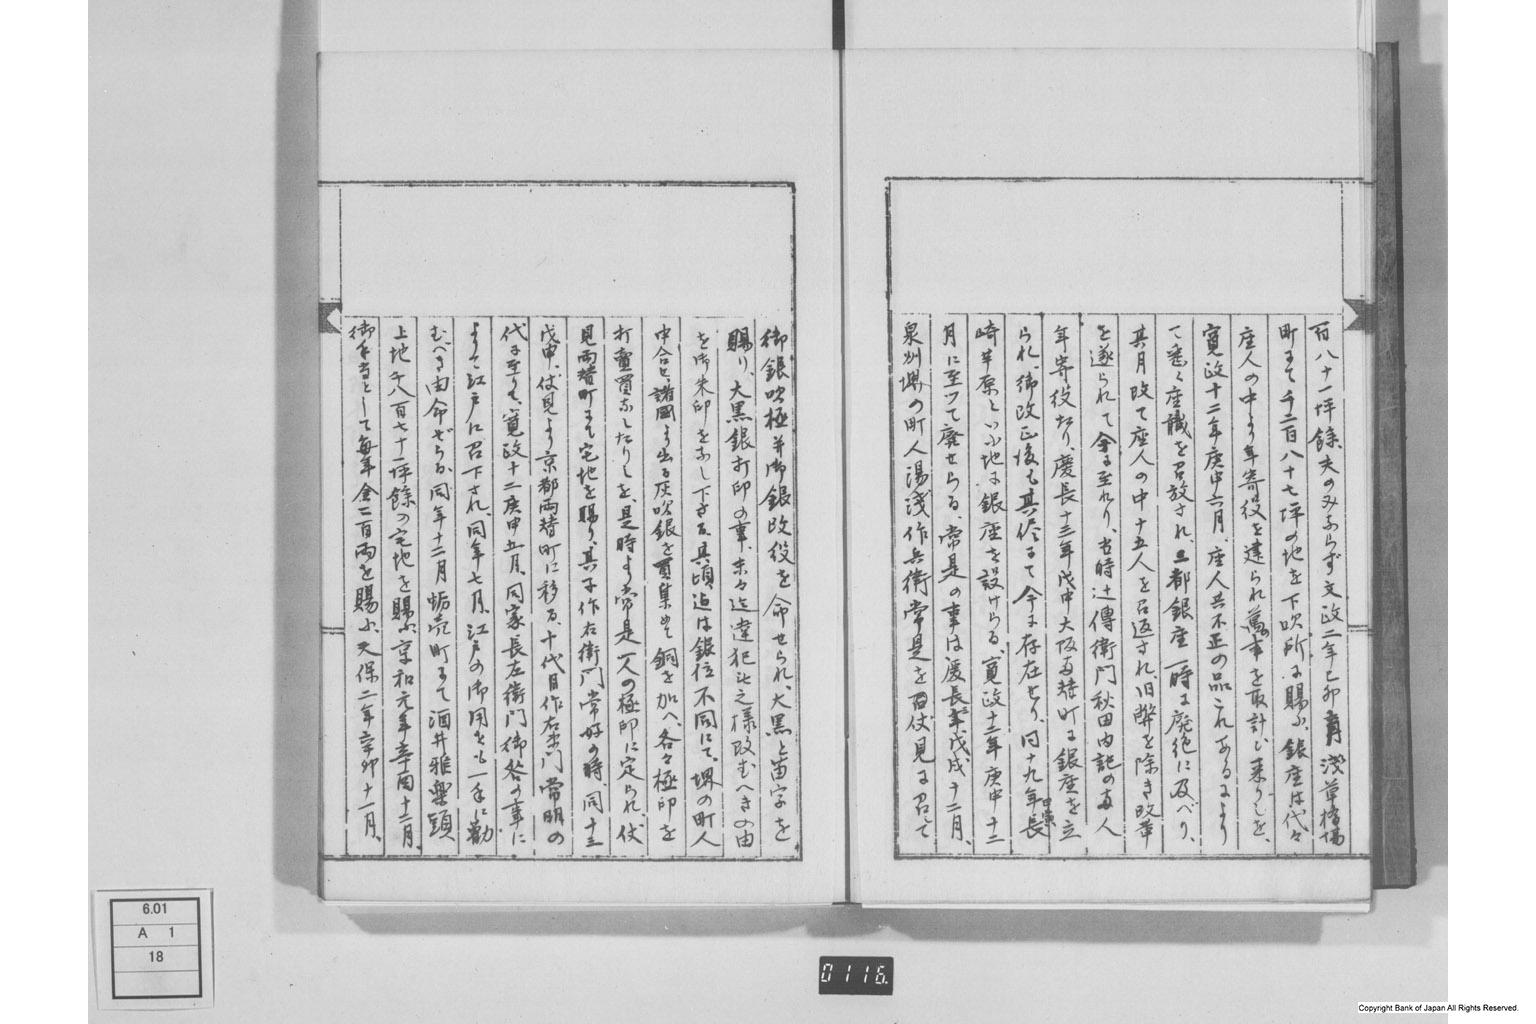 百八十一坪餘夫のみならず文政二年己卯 浅草猿場
町にて千二百八十七坪の地を下吹所に賜ふ、銀座は代々
座人の中より年寄役を建られ萬の事を取計ひ来りしを、
寛政十二年庚申六月、座人共不正の品これあるにより
て悉く座職を召放され、三都銀座一時に廃絶に及べり、
其月改て座人の中十五人を召返され、旧弊を除き改革
を遂られて今に至れり、古時辻傳衛門秋田内記の両人
年寄役たり、慶長十三年戊申大坂両替町に銀座を立
られ、御改正後も其侭にて今に存在せり、同十九年長
崎半原といふ地に銀座を設けらる、寛政十二年庚申十二
月に至ツて廃せらる、常是の事は慶長三年戊戌十二月、
泉州堺の町人湯浅作兵衛常是を 伏見に召して
御銀吹極并御銀改役を命せられ、大黒と苗字を
賜り、大黒銀打印の事、末々迄違犯无之様改むへきの由
を御朱印をなし下さる、其頃迄は銀位不同にて、堺の町人
中合せ、諸國より出る灰吹銀を買集めて銅を加へ、各々極印を
打賣買なしたりしを、是時より常是一人の極印に定られ、伏
見両替町にて宅地を賜り、其子作右衛門常好の時、同十三
戊申、伏見より京都両替町に移る、十代目作右衛門常明の
代に至りて、寛政十二庚申五月、同家長左衛門御咎の事に
よりて江戸に召下され、同年七月、江戸の御用をも一手に勤
むべき由命ぜらる、同年十二月蛎売町にて酒井雅楽頭
上地千八百七十一坪餘の宅地を賜ふ、享和元年辛酉十二月
御手当として毎年金二百両を賜ふ、天保二年辛卯十一月、
6.01
A 1
18
0116
Copyright Bank of Japan All Rights Reserved.